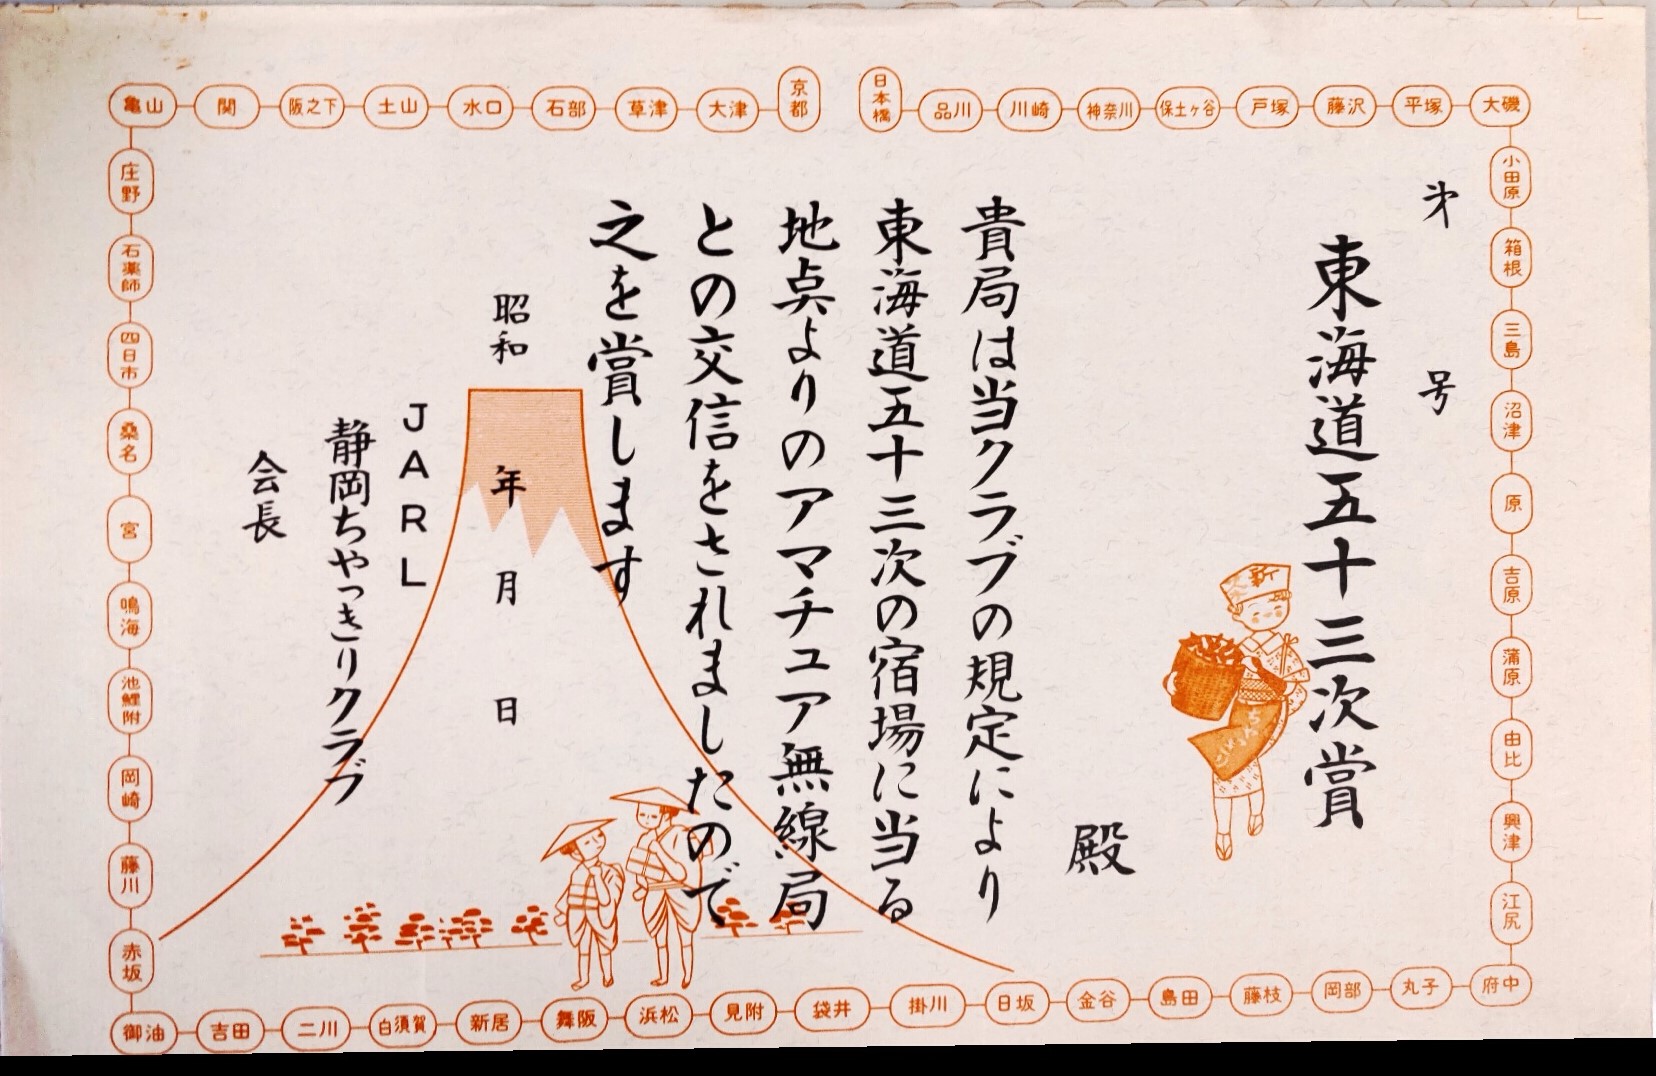 日本橋
品川
川崎
神奈川
保土ヶ谷
戸塚
藤沢
平塚
大磯
小田原
箱根
三島
沼津
原
吉原
蒲原
由比
興津
江尻
府中
丸子
岡部
藤枝
島田
金谷
日坂
掛川
袋井
見附
浜松
舞阪
新居
白須賀
二川
吉田
御油
赤坂
藤川
岡崎
池鯉附
鳴海
宮
桑名
四日市
石薬師
庄野
亀山
関
阪之下
土山
水口
石部
草津
大津
京都
才 号
東海道五十三次賞
新
ちゃっきり
殿
貴局は当クラブの規定により
東海道五十三次の宿場に当る
地点よりのアマチュア無線局
との交信をされましたので
之を賞します
昭和 年 月 日
JARL
静岡ちやっきりクラブ
会長